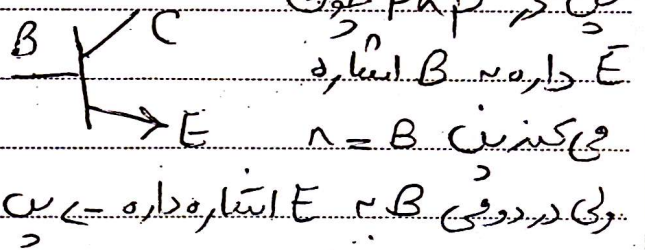 پس در pnp چون
B C E
E داره به B اشاره
می‌کند پس n = B
ولی در دومی B به E اشاره داره -> پس